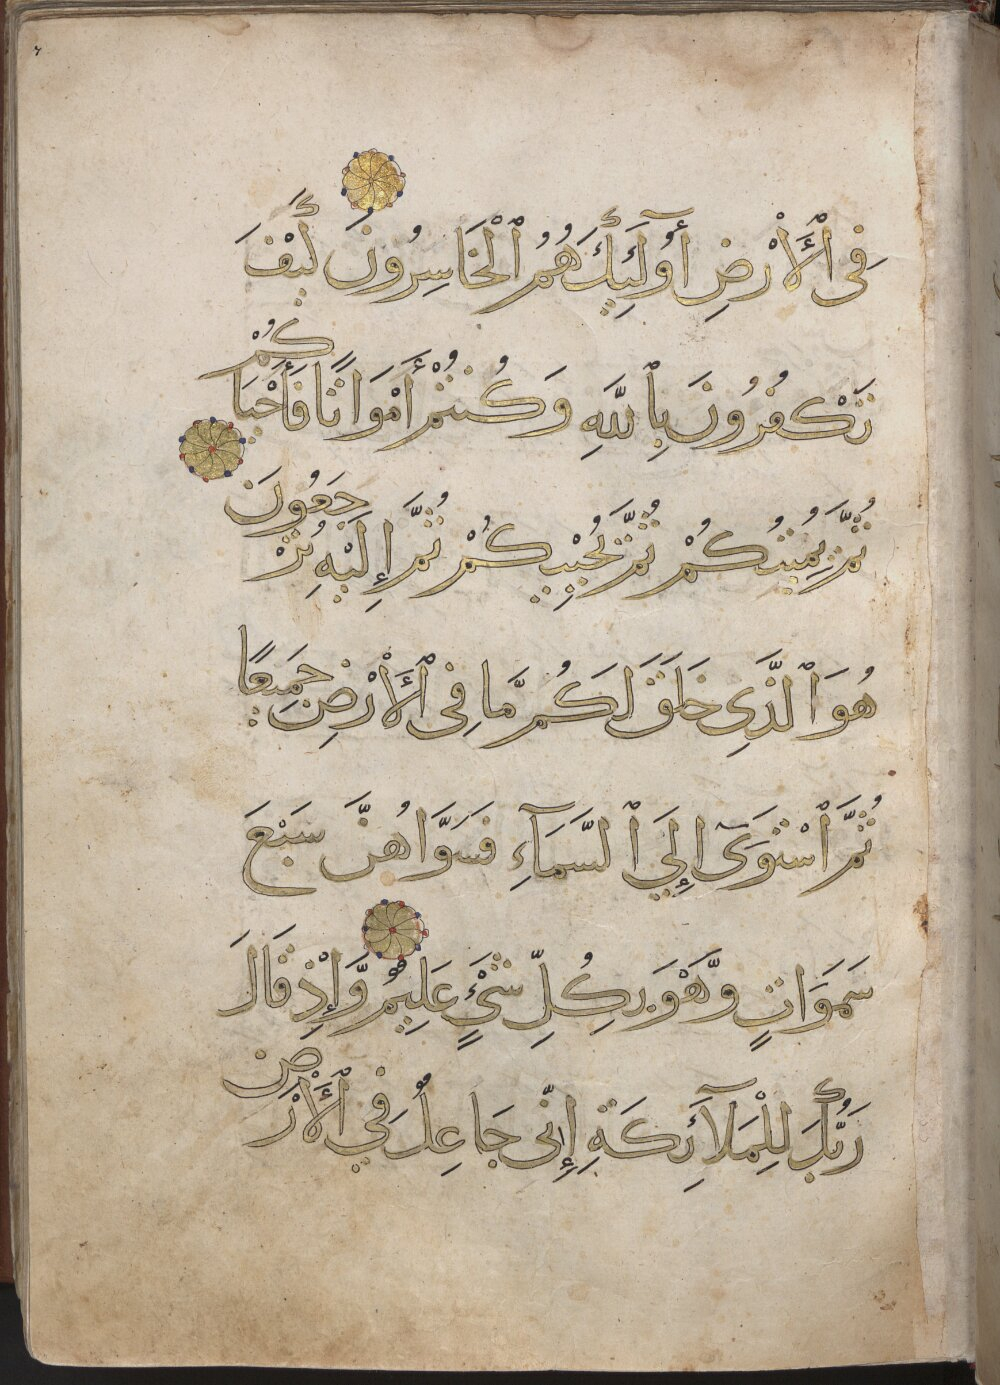 ٦
فِى ٱلْأَرْضِ أُوَلَٰٓئِكَ هُمُ ٱلْخَاسِرُونَ كَيْفَ
تَكْفُرُونَ بِٱللَّهِ وَكُنتُمْ أَمْوَاتًا فَأَحْيَاكُمْ
ثُمَّ يُمِيتُكُمْ ثُمَّ يُحْيِيكُمْ ثُمَّ إِلَيْهِ تُرْجَعُونَ
هُوَ ٱلَّذِى خَلَقَ لَكُم مَّا فِى ٱلْأَرْضِ جَمِيعًا
ثُمَّ ٱسْتَوَىٰٓ إِلَى ٱلسَّمَآءِ فَسَوَّاهُنَّ سَبْعَ
سَمَوَاتٍ وَّهْوَ بِكُلِّ شَىْءٍ عَلِيمٌ وَّإِذْ قَالَ
رَبُّكَ لِلْمَلَآئِكَةِ إِنِّى جَاعِلٌ فِى ٱلْأَرْضِ